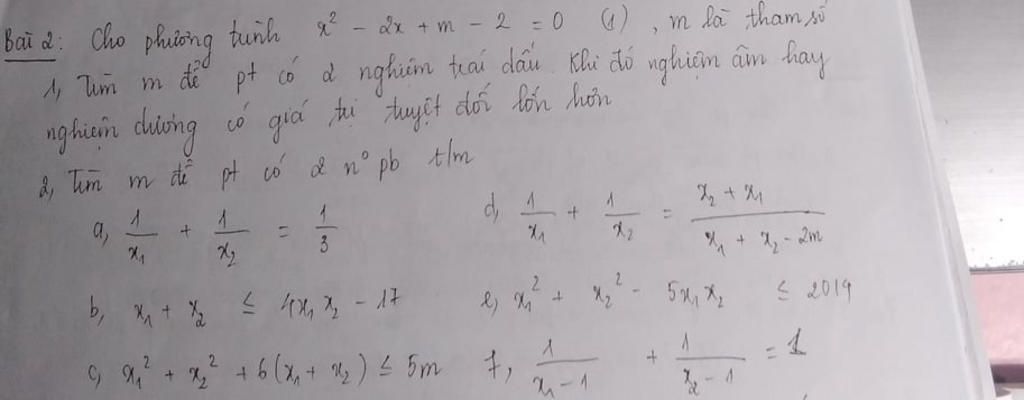 Bài 2: Cho phương trình x² - 2x + m - 2 = 0 (1), m là tham số
1, Tìm m để pt có 2 nghiệm trái dấu. Khi đó nghiệm âm hay
nghiệm dương có giá trị tuyệt đối lớn hơn
2, Tìm m để pt có 2 n° pb t/m
a, 1/x₁ + 1/x₂ = 1/3
b, x₁ + x₂ ≤ 4x₁x₂ - 17
c, x₁² + x₂² + 6(x₁ + x₂) ≤ 5m
d, 1/x₁ + 1/x₂ = (x₂ + x₁)/(x₁ + x₂ - 2m)
e, x₁² + x₂² - 5x₁x₂ ≤ 2019
f, 1/(x₁ - 1) + 1/(x₂ - 1) = 1